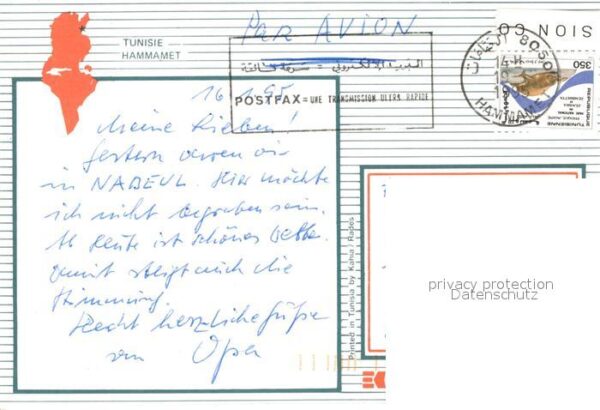 PAR AVION
TUNISIE
HAMMAMET
البريد الالكتروني = سرعة فائقة
POSTFAX = UNE TRANSMISSION ULTRA RAPIDE
SION CO
HAMMAMET
350
REPUBLIQUE
TUNISIENNE
16.1.95
Meine Lieben!
Gestern waren wir
in NABEUL. Hier möchte
ich nicht begraben sein.
Heute ist schönes Wetter
damit steigt auch die
Stimmung.
Recht herzliche Grüße
von Opa
Printed in Tunisia by Kahia / Rades
privacy protection
Datenschutz